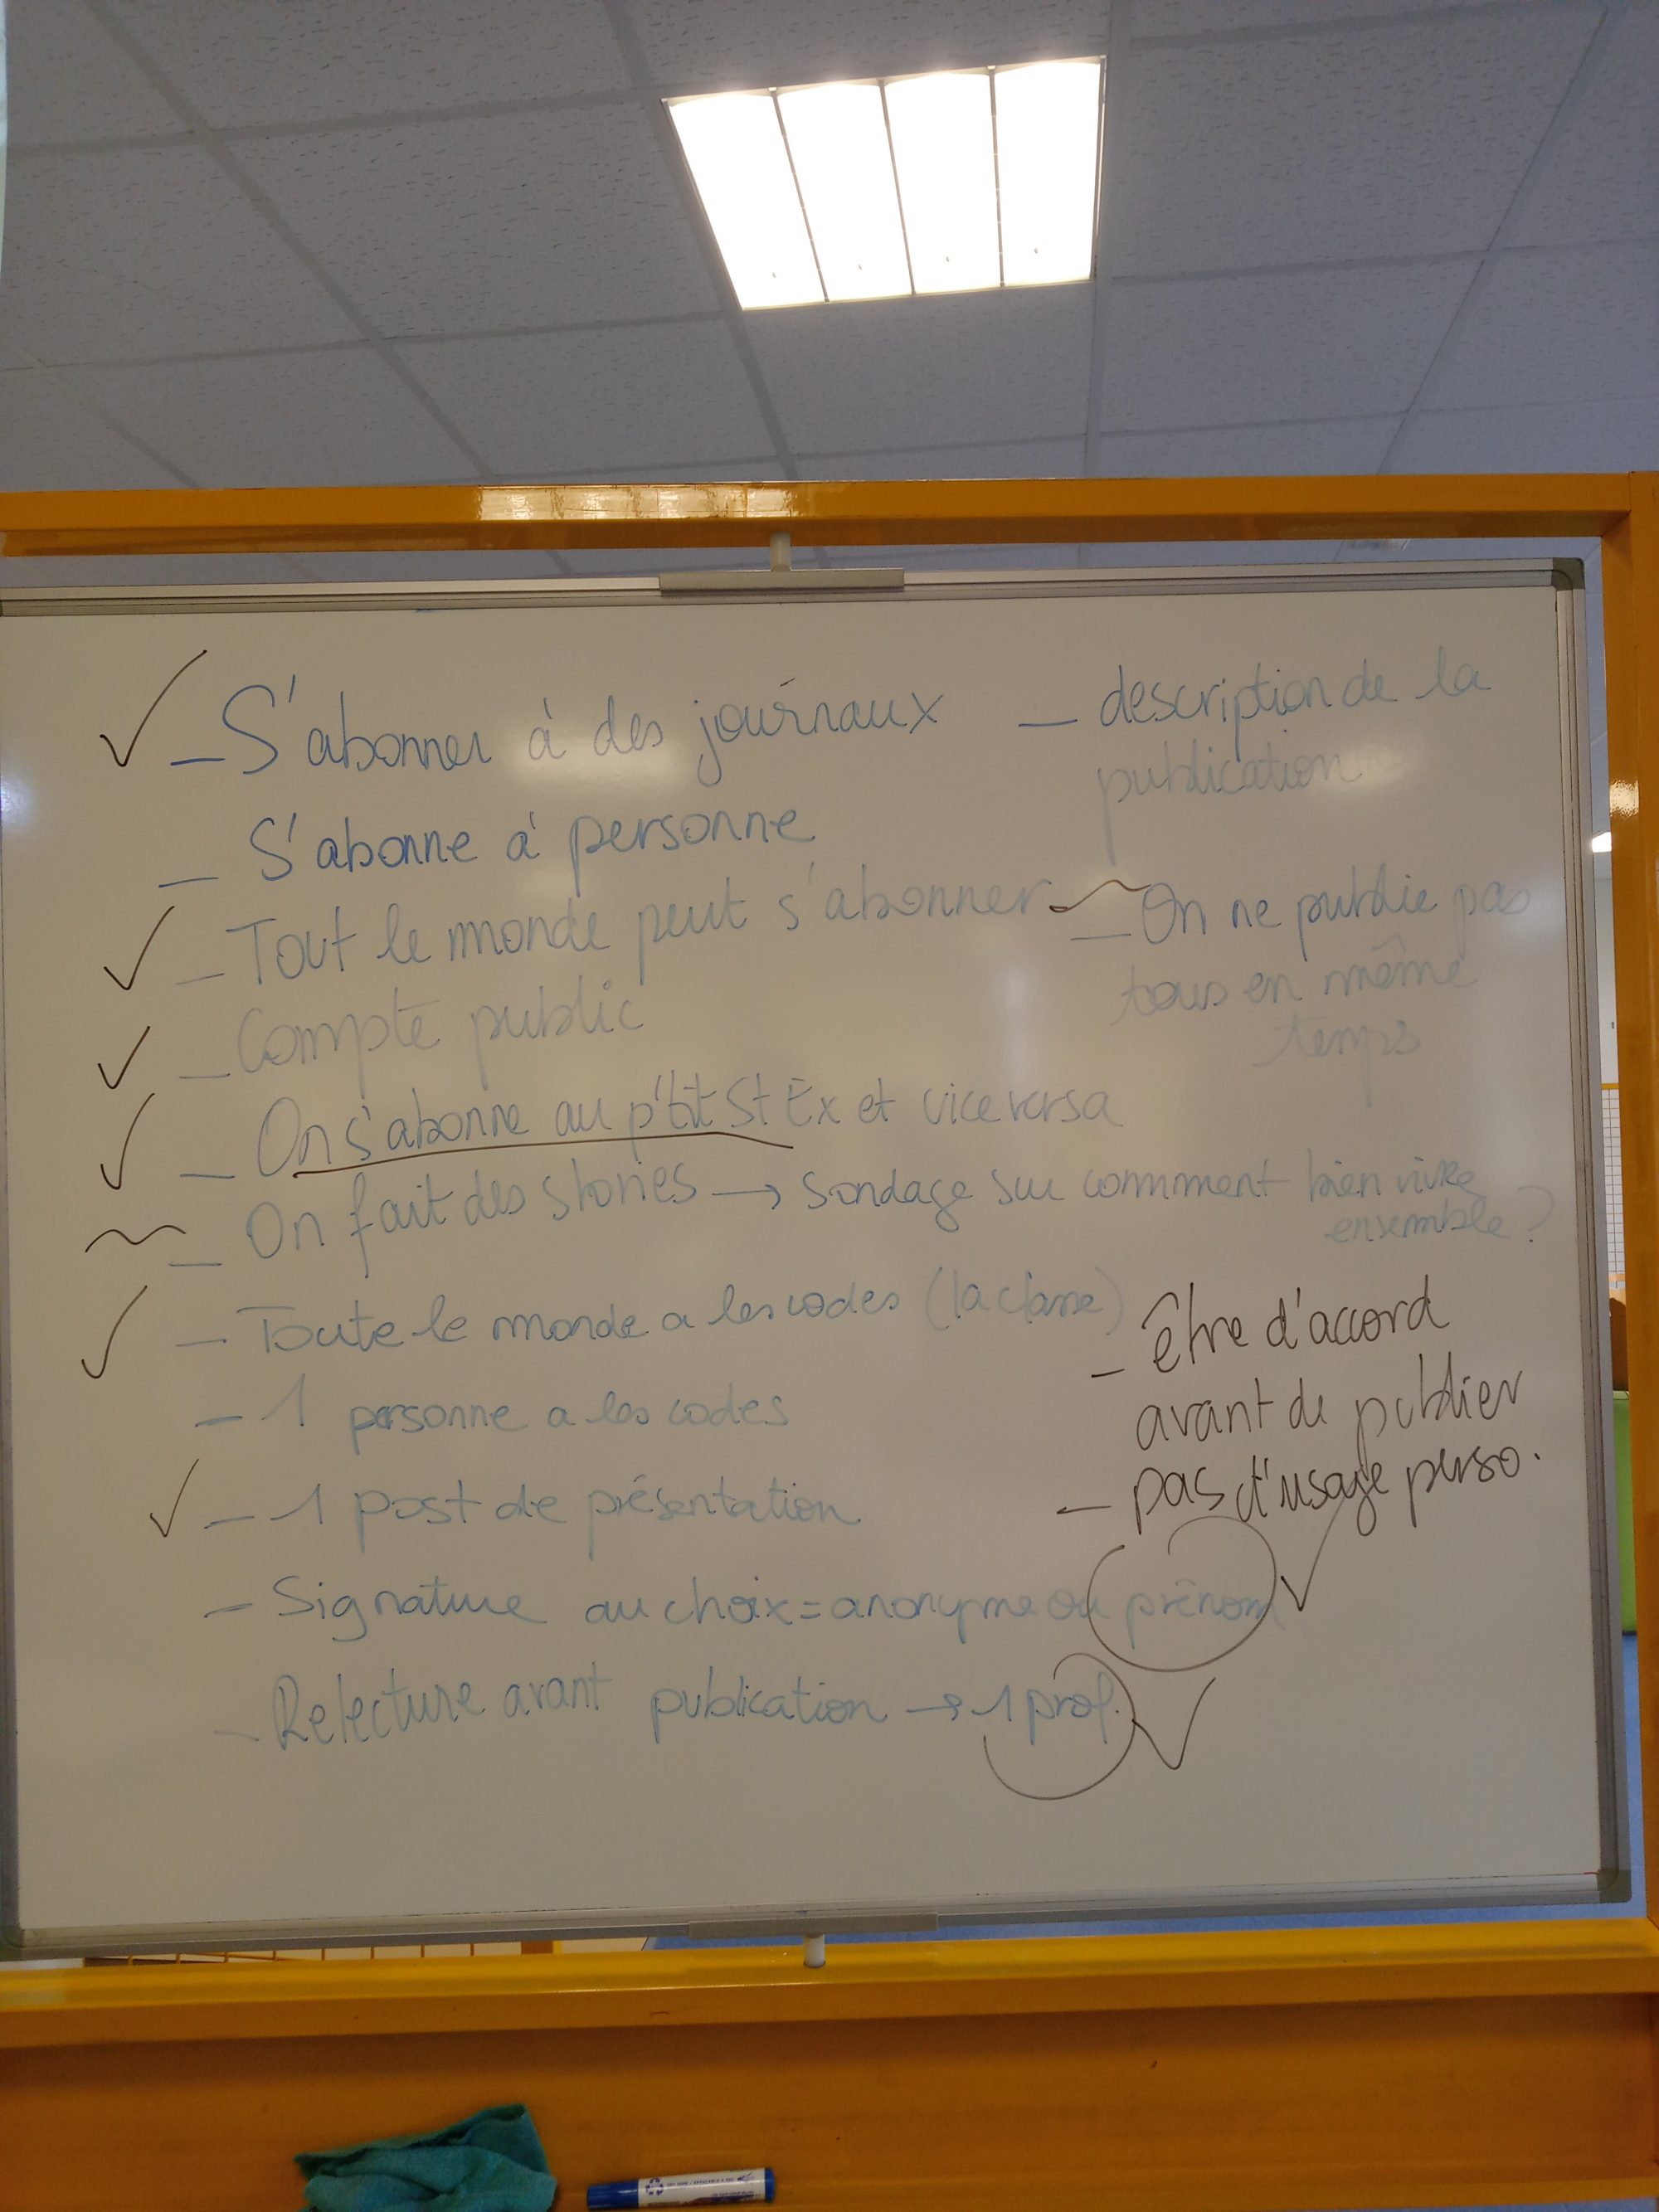 - S'abonner à des journaux
- S'abonne à personne
- Tout le monde peut s'abonner
- Compte public
- On s'abonne au p'tit St Ex et vice versa
- On fait des stories → Sondage sur comment bien vivre
ensemble ?
- Toute le monde a les codes (la classe)
- 1 personne a les codes
- 1 post de présentation
- Signature au choix = anonyme ou prénom
- Relecture avant publication → 1 prof.
- description de la
publication
- On ne publie pas
tous en même
temps
- être d'accord
avant de publier
- pas d'usage perso.